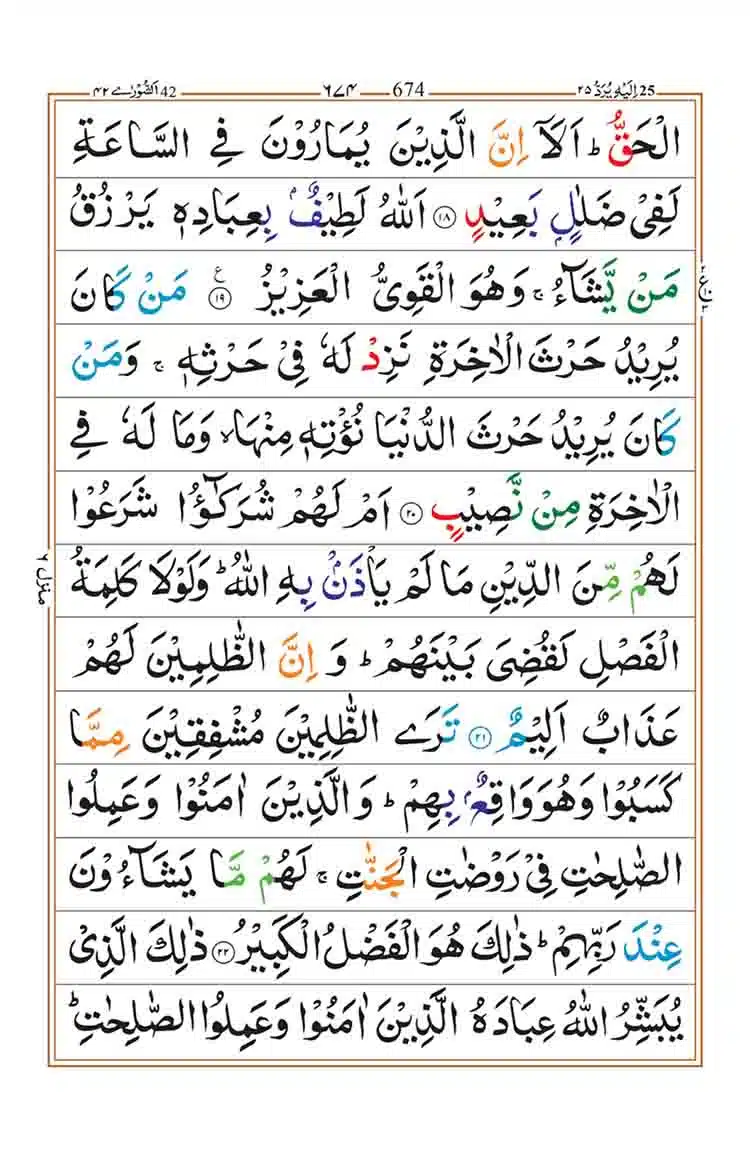 25 اِلَيْهِ يُرَدُّ ۲۵ 674 ۶۷۴ 42 اَلشُّوْرٰى ۴۲
الْحَقُّ ؕ اَلَاۤ اِنَّ الَّذِيْنَ يُمَارُوْنَ فِى السَّاعَةِ
لَفِىْ ضَلٰلٍۭ بَعِيْدٍ ۱۸ اَللّٰهُ لَطِيْفٌۢ بِعِبَادِهٖ يَرْزُقُ
مَنْ يَّشَآءُ ۚ وَهُوَ الْقَوِىُّ الْعَزِيْزُ ۱۹ ع مَنْ كَانَ
يُرِيْدُ حَرْثَ الْاٰخِرَةِ نَزِدْ لَهٗ فِىْ حَرْثِهٖ ۚ وَمَنْ
كَانَ يُرِيْدُ حَرْثَ الدُّنْيَا نُؤْتِهٖ مِنْهَا ۙ وَمَا لَهٗ فِى
الْاٰخِرَةِ مِنْ نَّصِيْبٍ ۲۰ اَمْ لَهُمْ شُرَكٰٓؤُا شَرَعُوْا
لَهُمْ مِّنَ الدِّيْنِ مَا لَمْ يَاْذَنْۢ بِهِ اللّٰهُ ؕ وَلَوْلَا كَلِمَةُ
منزل ۶
الْفَصْلِ لَقُضِىَ بَيْنَهُمْ ؕ وَ اِنَّ الظّٰلِمِيْنَ لَهُمْ
عَذَابٌ اَلِيْمٌ ۲۱ تَرَى الظّٰلِمِيْنَ مُشْفِقِيْنَ مِمَّا
كَسَبُوْا وَهُوَ وَاقِعٌۢ بِهِمْ ؕ وَالَّذِيْنَ اٰمَنُوْا وَعَمِلُوا
الصّٰلِحٰتِ فِىْ رَوْضٰتِ الْجَنّٰتِ ۚ لَهُمْ مَّا يَشَآءُوْنَ
عِنْدَ رَبِّهِمْ ؕ ذٰلِكَ هُوَ الْفَضْلُ الْكَبِيْرُ ۲۲ ذٰلِكَ الَّذِىْ
يُبَشِّرُ اللّٰهُ عِبَادَهُ الَّذِيْنَ اٰمَنُوْا وَعَمِلُوا الصّٰلِحٰتِ ؕ